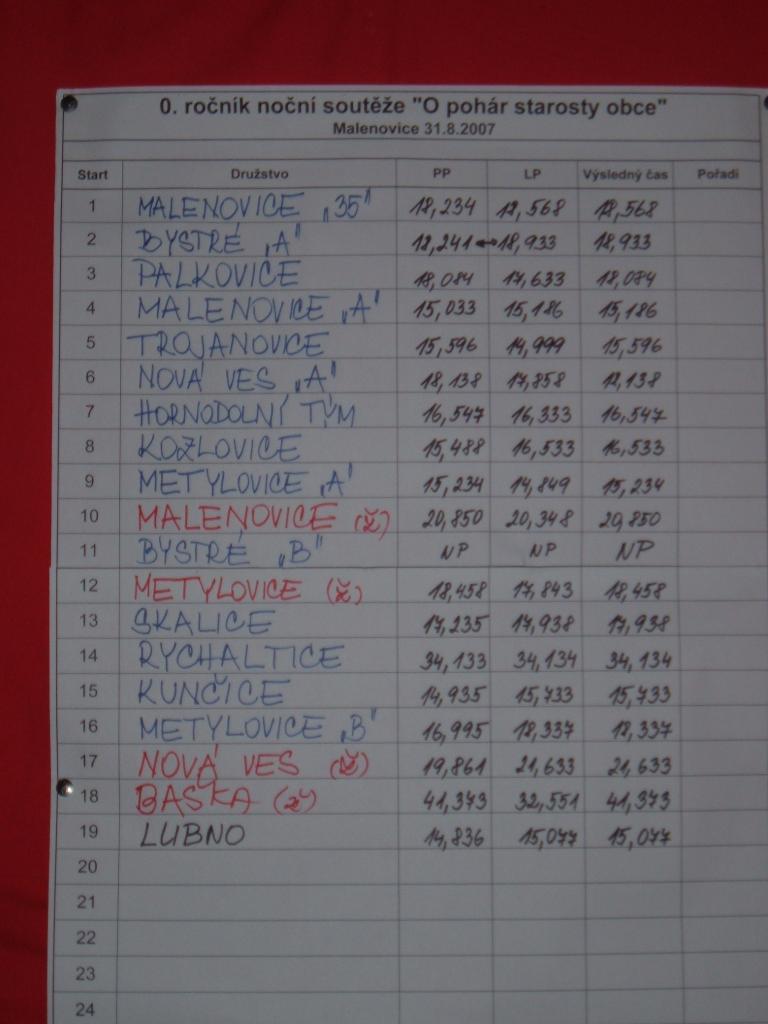 0. ročník noční soutěže "O pohár starosty obce"
Malenovice 31.8.2007
Start Družstvo PP LP Výsledný čas Pořadí
1 MALENOVICE „35" 18,234 18,568 18,568
2 BYSTRÉ „A" 18,241 ↔ 18,933 18,933
3 PALKOVICE 18,084 17,633 18,084
4 MALENOVICE „A" 15,033 15,186 15,186
5 TROJANOVICE 15,596 14,999 15,596
6 NOVÁ VES „A" 18,138 17,858 18,138
7 HORNODOLNÍ TÝM 16,547 16,333 16,547
8 KOZLOVICE 15,488 16,533 16,533
9 METYLOVICE „A" 15,234 14,849 15,234
10 MALENOVICE (ž) 20,850 20,348 20,850
11 BYSTRÉ „B" NP NP NP
12 METYLOVICE (ž) 18,458 17,843 18,458
13 SKALICE 17,235 17,938 17,938
14 RYCHALTICE 34,133 34,134 34,134
15 KUNČICE 14,935 15,733 15,733
16 METYLOVICE „B" 16,995 18,337 18,337
17 NOVÁ VES (ž) 19,861 21,633 21,633
18 BAŠKA (ž) 41,373 32,551 41,373
19 LUBNO 14,836 15,077 15,077
20
21
22
23
24